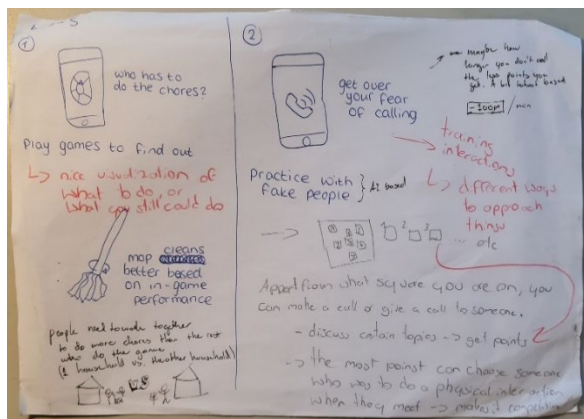 ①
who has to
do the chores?
Play games to find out
↳ nice visualization of
what to do, or
what you still could do
map cleans
better based
on in-game
performance
people need to work together
to do more chores than the
who do the game
(1 household vs. the other household)
VS
②
get over
your fear
of calling
maybe how
longer you don't
the less points you
get.
-100p/min
→ training
interactions
↳ different ways
to approach
things
Practice with
fake people } AI based
→
1 2 3 ... etc
Appart from what square you are on, you
can make a call or give a call to someone.
- discuss certain topics → get points
→ the most points can choose someone
who has to do a physical interaction
when they meet → makes it competitive